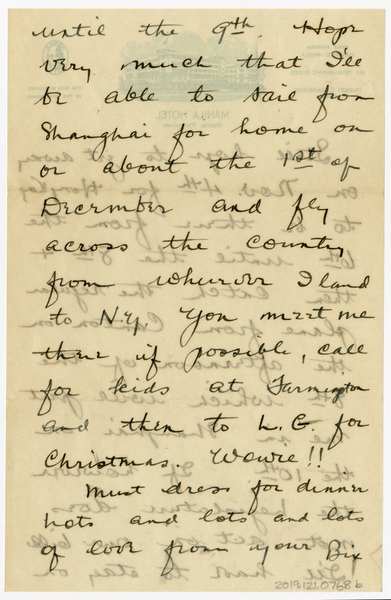 until the 9th. Hope
very much that I'll
be able to sail from
Shanghai for home on
or about the 1st of
December and fly
across the country
from wherever I land
to N.Y. You meet me
there if possible, call
for kids at Farmington
and then to L.G. for
Christmas. Wowie!!
Must dress for dinner
hots and lots and lots
of love from your Bix
2019.121.0768b